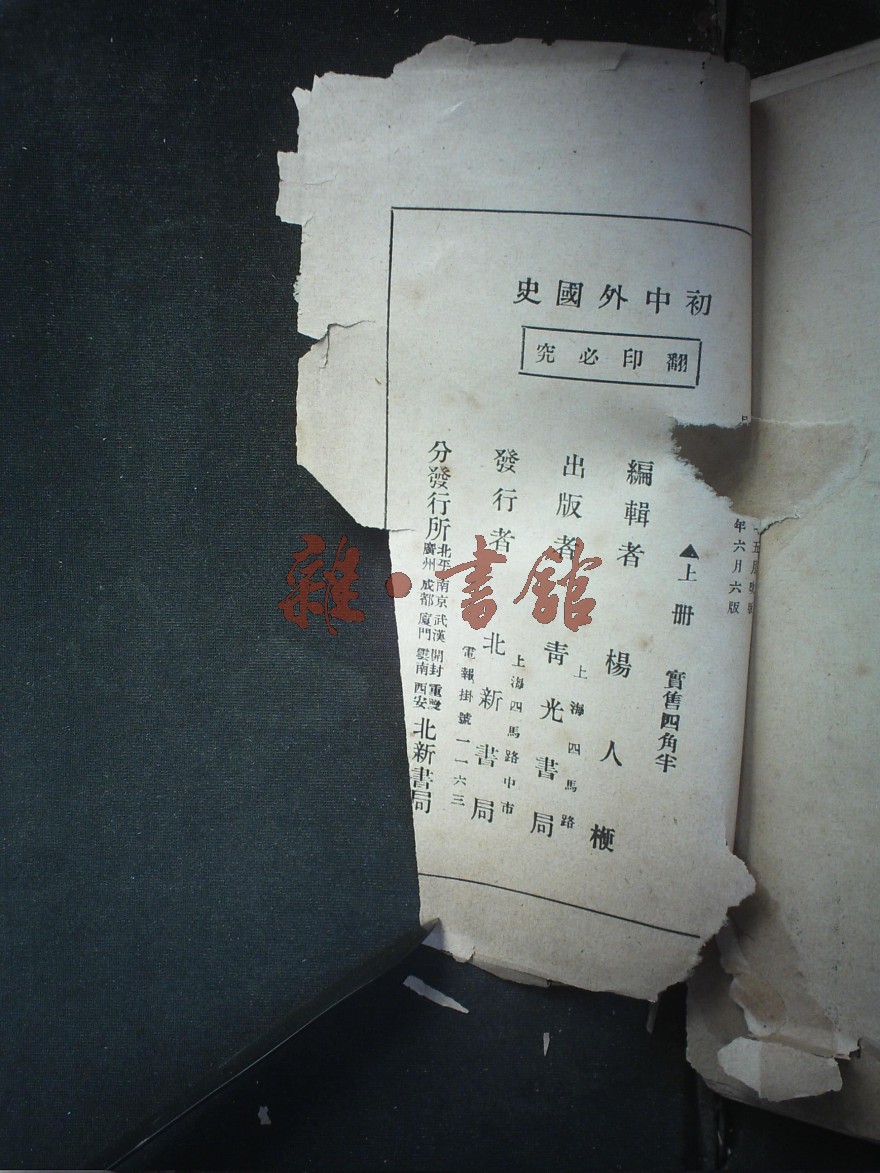 初中外國史
翻印必究
年六月六版
▲上册 實售四角半
編輯者 楊人楩
出版者 青光書局
上海四馬路
發行者 北新書局
上海四馬路中市
電報掛號一一六三
分發行所 北平 南京 武漢 開封 重慶
廣州 成都 廈門 雲南 西安 北新書局
雜·書館